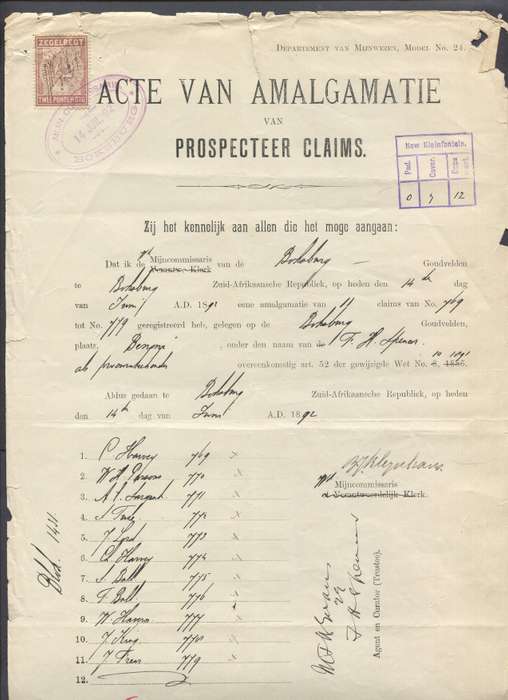 ZEGELREGT
DEPARTEMENT VAN MIJNWEZEN, MODEL No. 24.
ACTE VAN AMALGAMATIE
14 JUN. 92
VAN
PROSPECTEER CLAIMS.
New Kleinfontein.
Pad. Cover. Page
0 7 12
Zij het kennelijk aan allen die het moge aangaan:
Dat ik de Mijncommissaris van de Boksburg Goudvelden
Klerk
te Boksburg Zuid-Afrikaansche Republiek, op heden den 14de dag
van Juni A.D. 1892 eene amalgamatie van 11 claims van No. 769
tot No. 779 geregistreerd heb, gelegen op de Boksburg Goudvelden,
plaats, Benoni, onder den naam van de F. H. Spencer
overeenkomstig art. 52 der gewijzigde Wet No. 10 1891
8, 1886.
Aldus gedaan te Boksburg Zuid-Afrikaansche Republiek, op heden
den 14de dag van Juni A.D. 1892
1. C Harvey 769 x
2. W H Parsons 770 x
3. A 771 x
4. 772 x
5. J Lord 773 x
6. Harvey 774 x
7. S Ball 775 x
8. F Ball 776 x
9. W 777 x
10. J King 778 x
11. J 779 x
12.
Mijncommissaris
Verantwoordelijk Klerk.
Agent en Curator (Trustee).